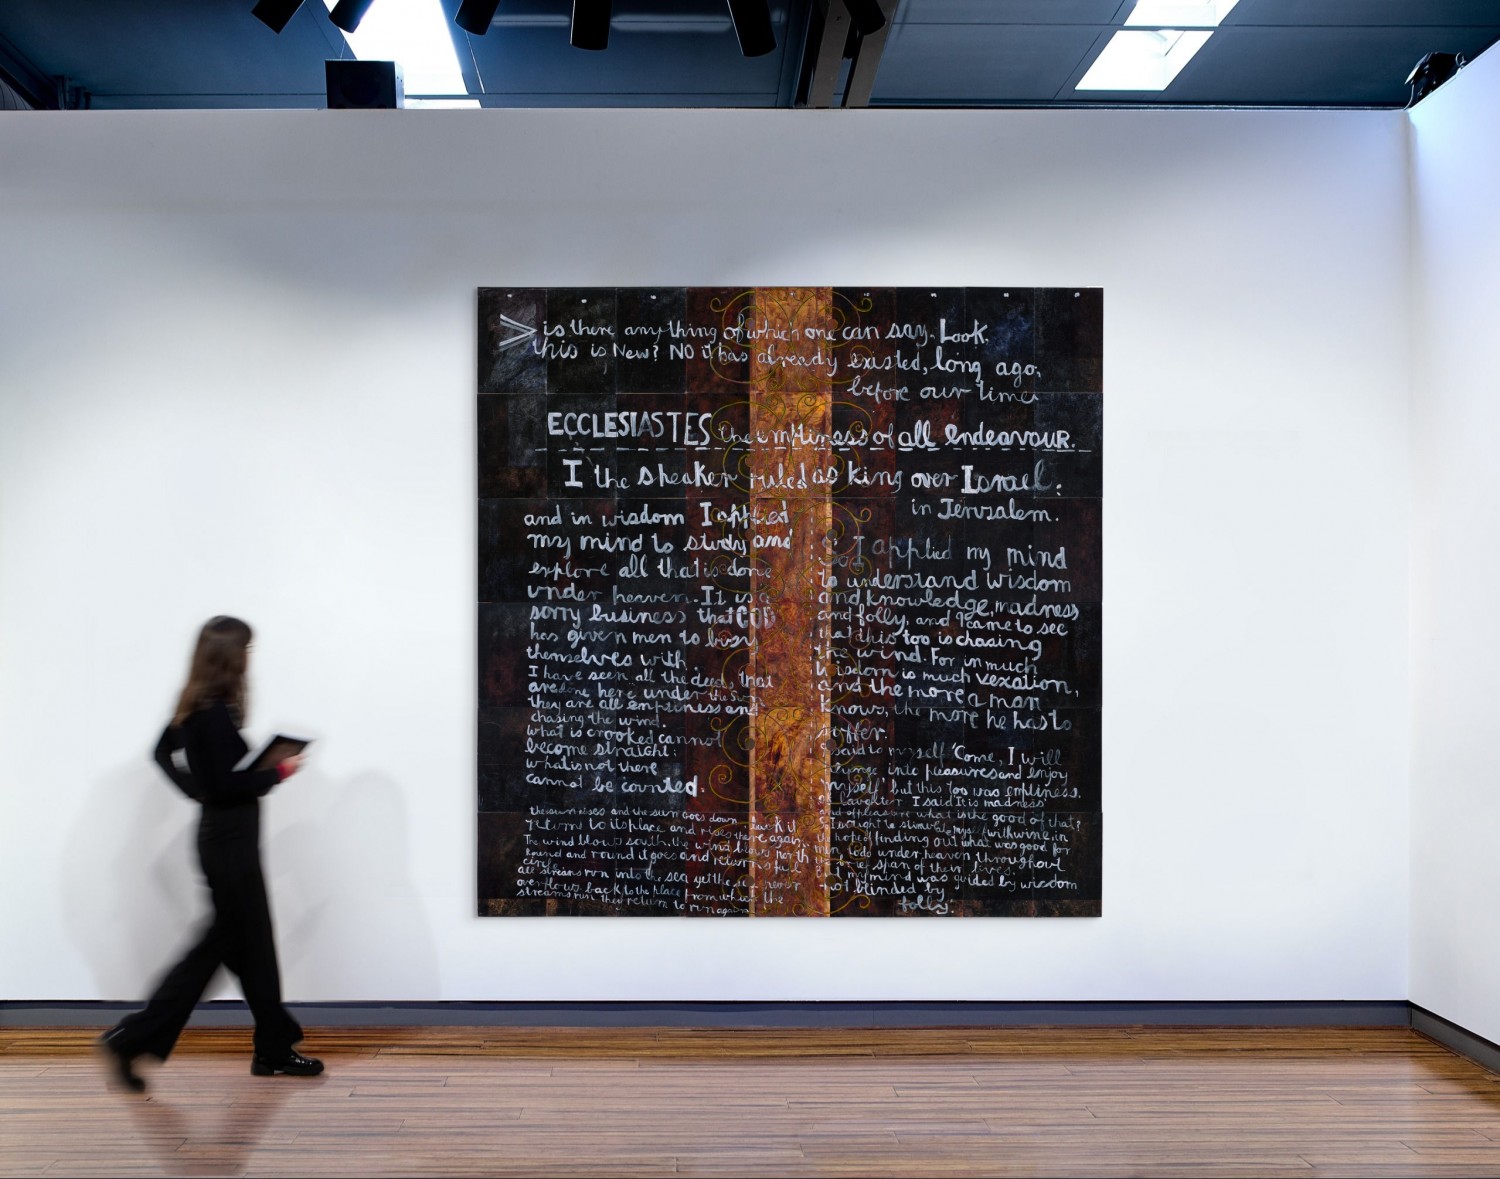 > is there anything of which one can say. Look,
this is New? NO it has already existed, long ago,
before our time
ECCLESIASTES the emptiness of all endeavour.
I the speaker ruled as king over Israel:
in Jerusalem.
and in wisdom I applied
my mind to study and
explore all that is done
under heaven. It is a
sorry business that GOD
has given men to busy
themselves with.
I have seen all the deeds that
are done here under the sun
they are all emptiness and
chasing the wind.
what is crooked cannot
become straight:
what is not there
cannot be counted.
the sun rises and the sun goes down, back it
returns to its place and rises there again.
The wind blows south, the wind blows north
Round and round it goes and returns full
circle
all streams run into the sea, yet the sea never
overflows, back to the place from which the
streams run they return to run again
So I applied my mind
to understand wisdom
and knowledge, madness
and folly, and I came to see
that this too is chasing
the wind. For in much
Wisdom is much vexation,
and the more a man
knows, the more he has to
suffer.
I said to myself 'Come, I will
plunge into pleasures and enjoy
myself' but this too was emptiness.
of laughter I said It is madness'
and of pleasure what is the good of that?
I sought to stimulate myself with wine, in
the hope of finding out what was good for
men to do under heaven throughout
brief span of their lives.
But my mind was guided by wisdom
not blinded by
folly.